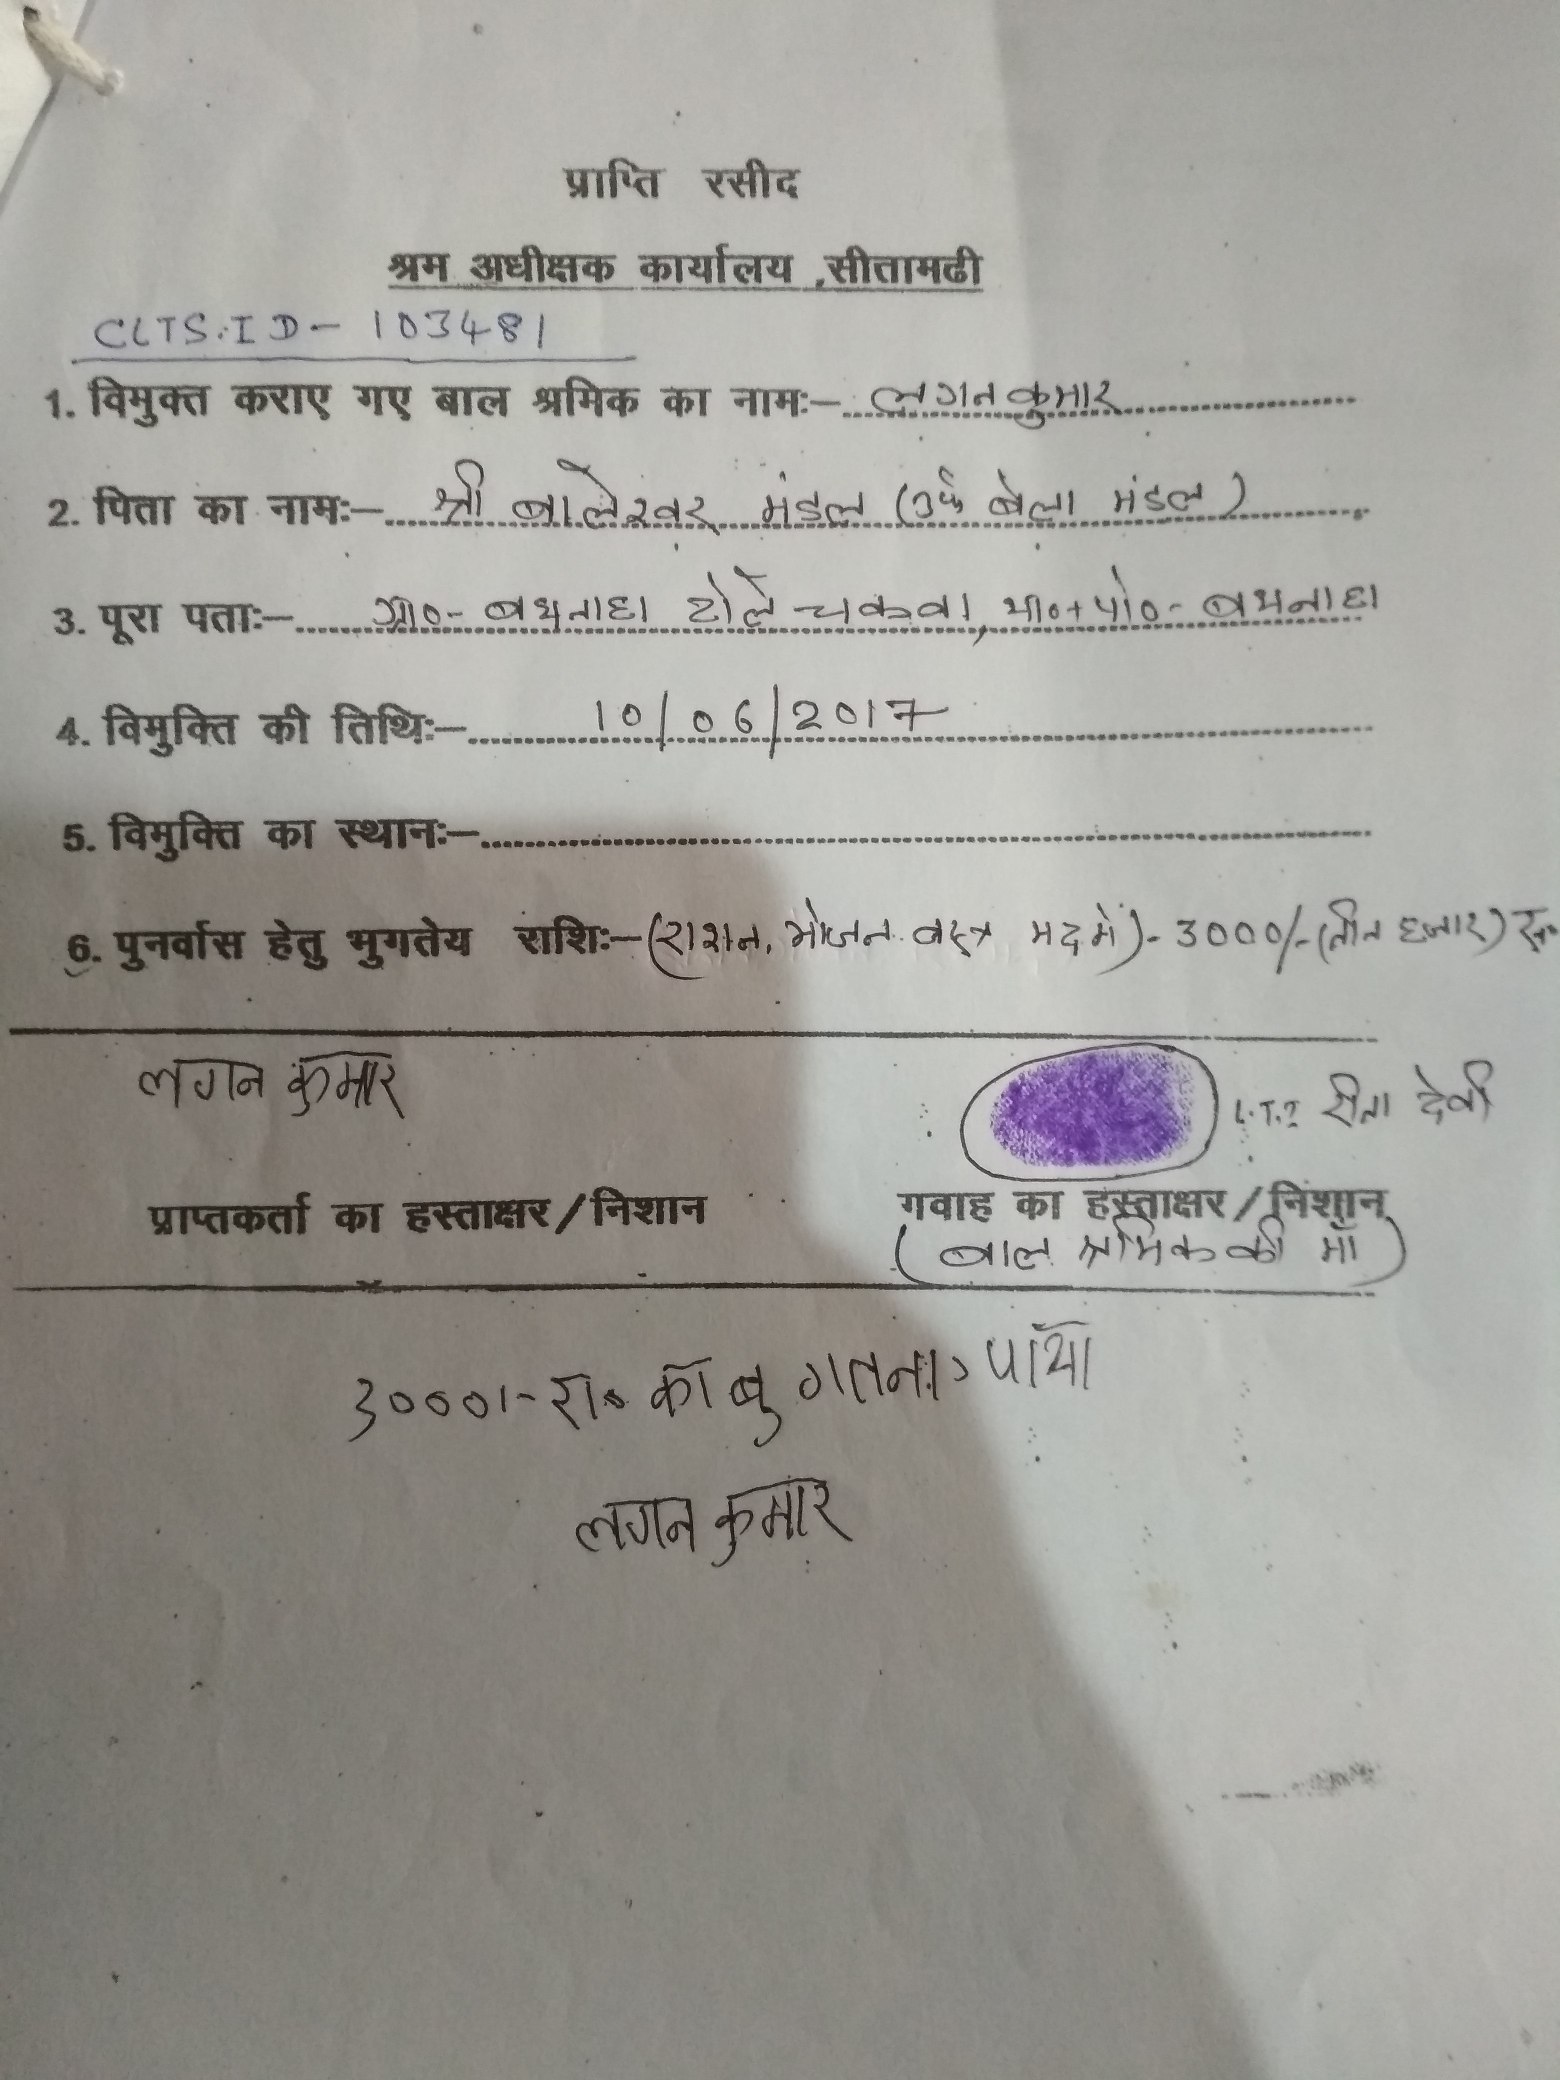 प्राप्ति रसीद
श्रम अधीक्षक कार्यालय ,सीतामढी
CLTS.ID- 103481
1. विमुक्त कराए गए बाल श्रमिक का नामः- लगन कुमार
2. पिता का नामः- श्री बालेश्वर मंडल (उर्फ बेला मंडल)
3. पूरा पताः- ग्रा०- बथनाहा टोले चकवा, था०+पो०- बथनाहा
4. विमुक्ति की तिथिः- 10/06/2017
5. विमुक्ति का स्थानः-
6. पुनर्वास हेतु भुगतेय राशिः-(राशन, भोजन वस्त्र मद में)- 3000/-(तीन हजार) रू०
लगन कुमार
L.T.I रीता देवी
प्राप्तकर्ता का हस्ताक्षर/निशान गवाह का हस्ताक्षर/निशान
(बाल श्रमिक की माँ)
3000/- रा० का बु गतना पाया
लगन कुमार